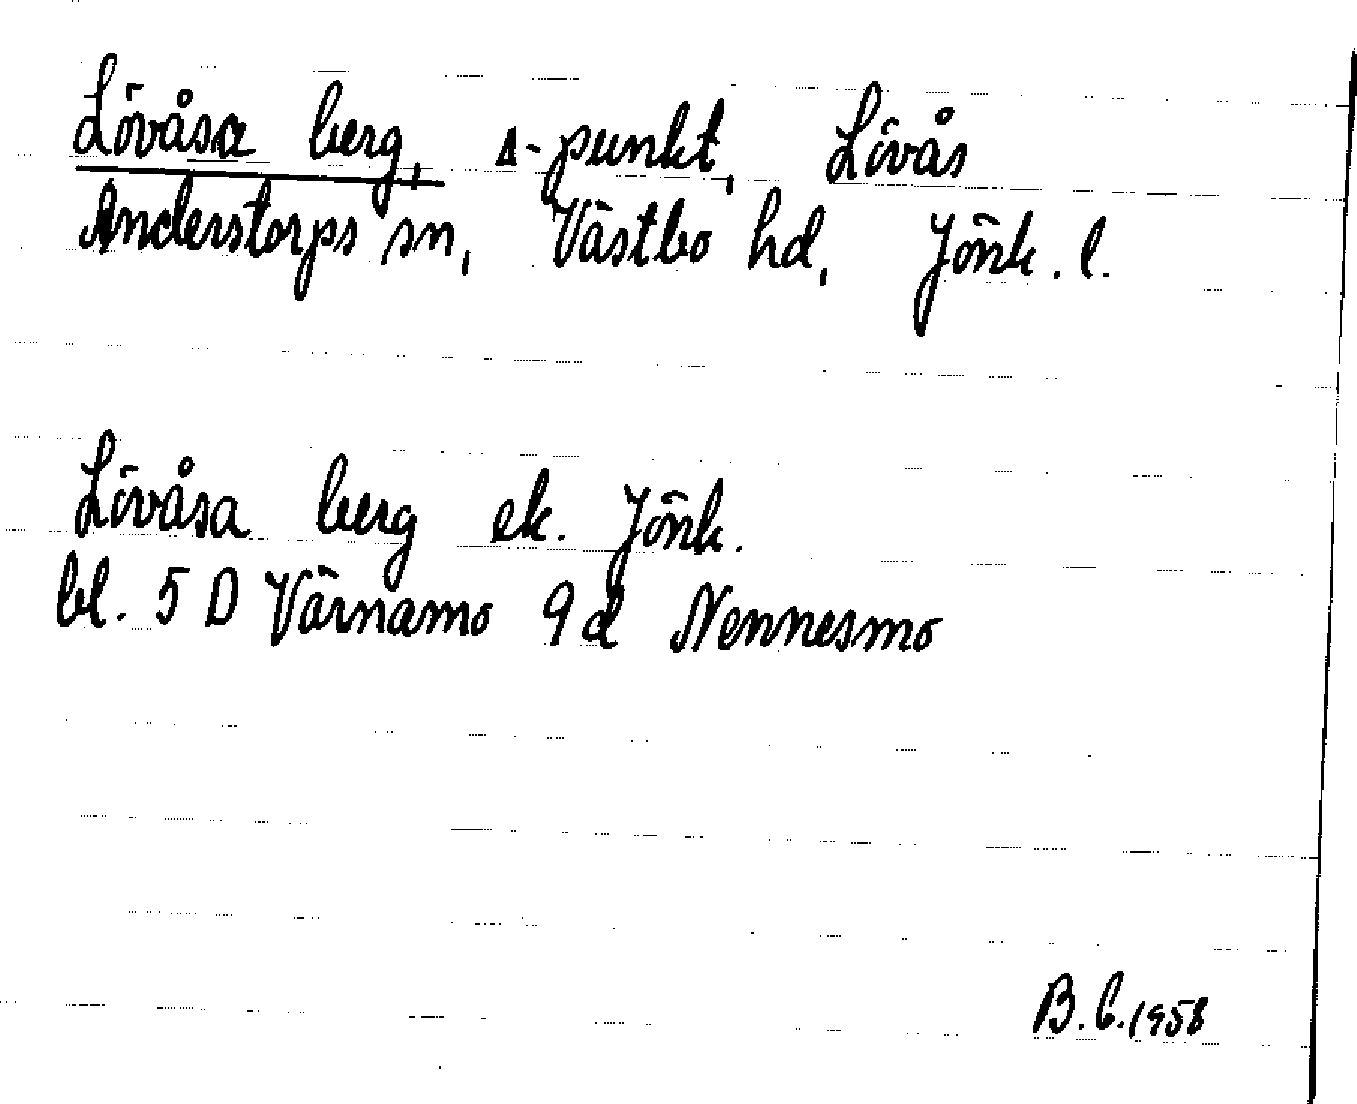 Lövåsa berg, Δ-punkt, Lövås
Anderstorps sn, Västbo hd, Jönk. l.
Lövåsa berg ek. Jönk.
bl. 5 D Värnamo 9 d Nennesmo
B. C. 1958